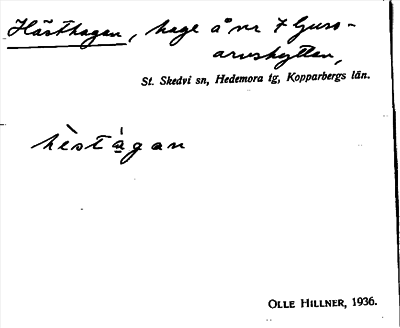 Hästhagen, hage å nr 7 Ljus-
arvshyttan,
St. Skedvi sn, Hedemora tg, Kopparbergs län.
hèstàgan
OLLE HILLNER, 1936.